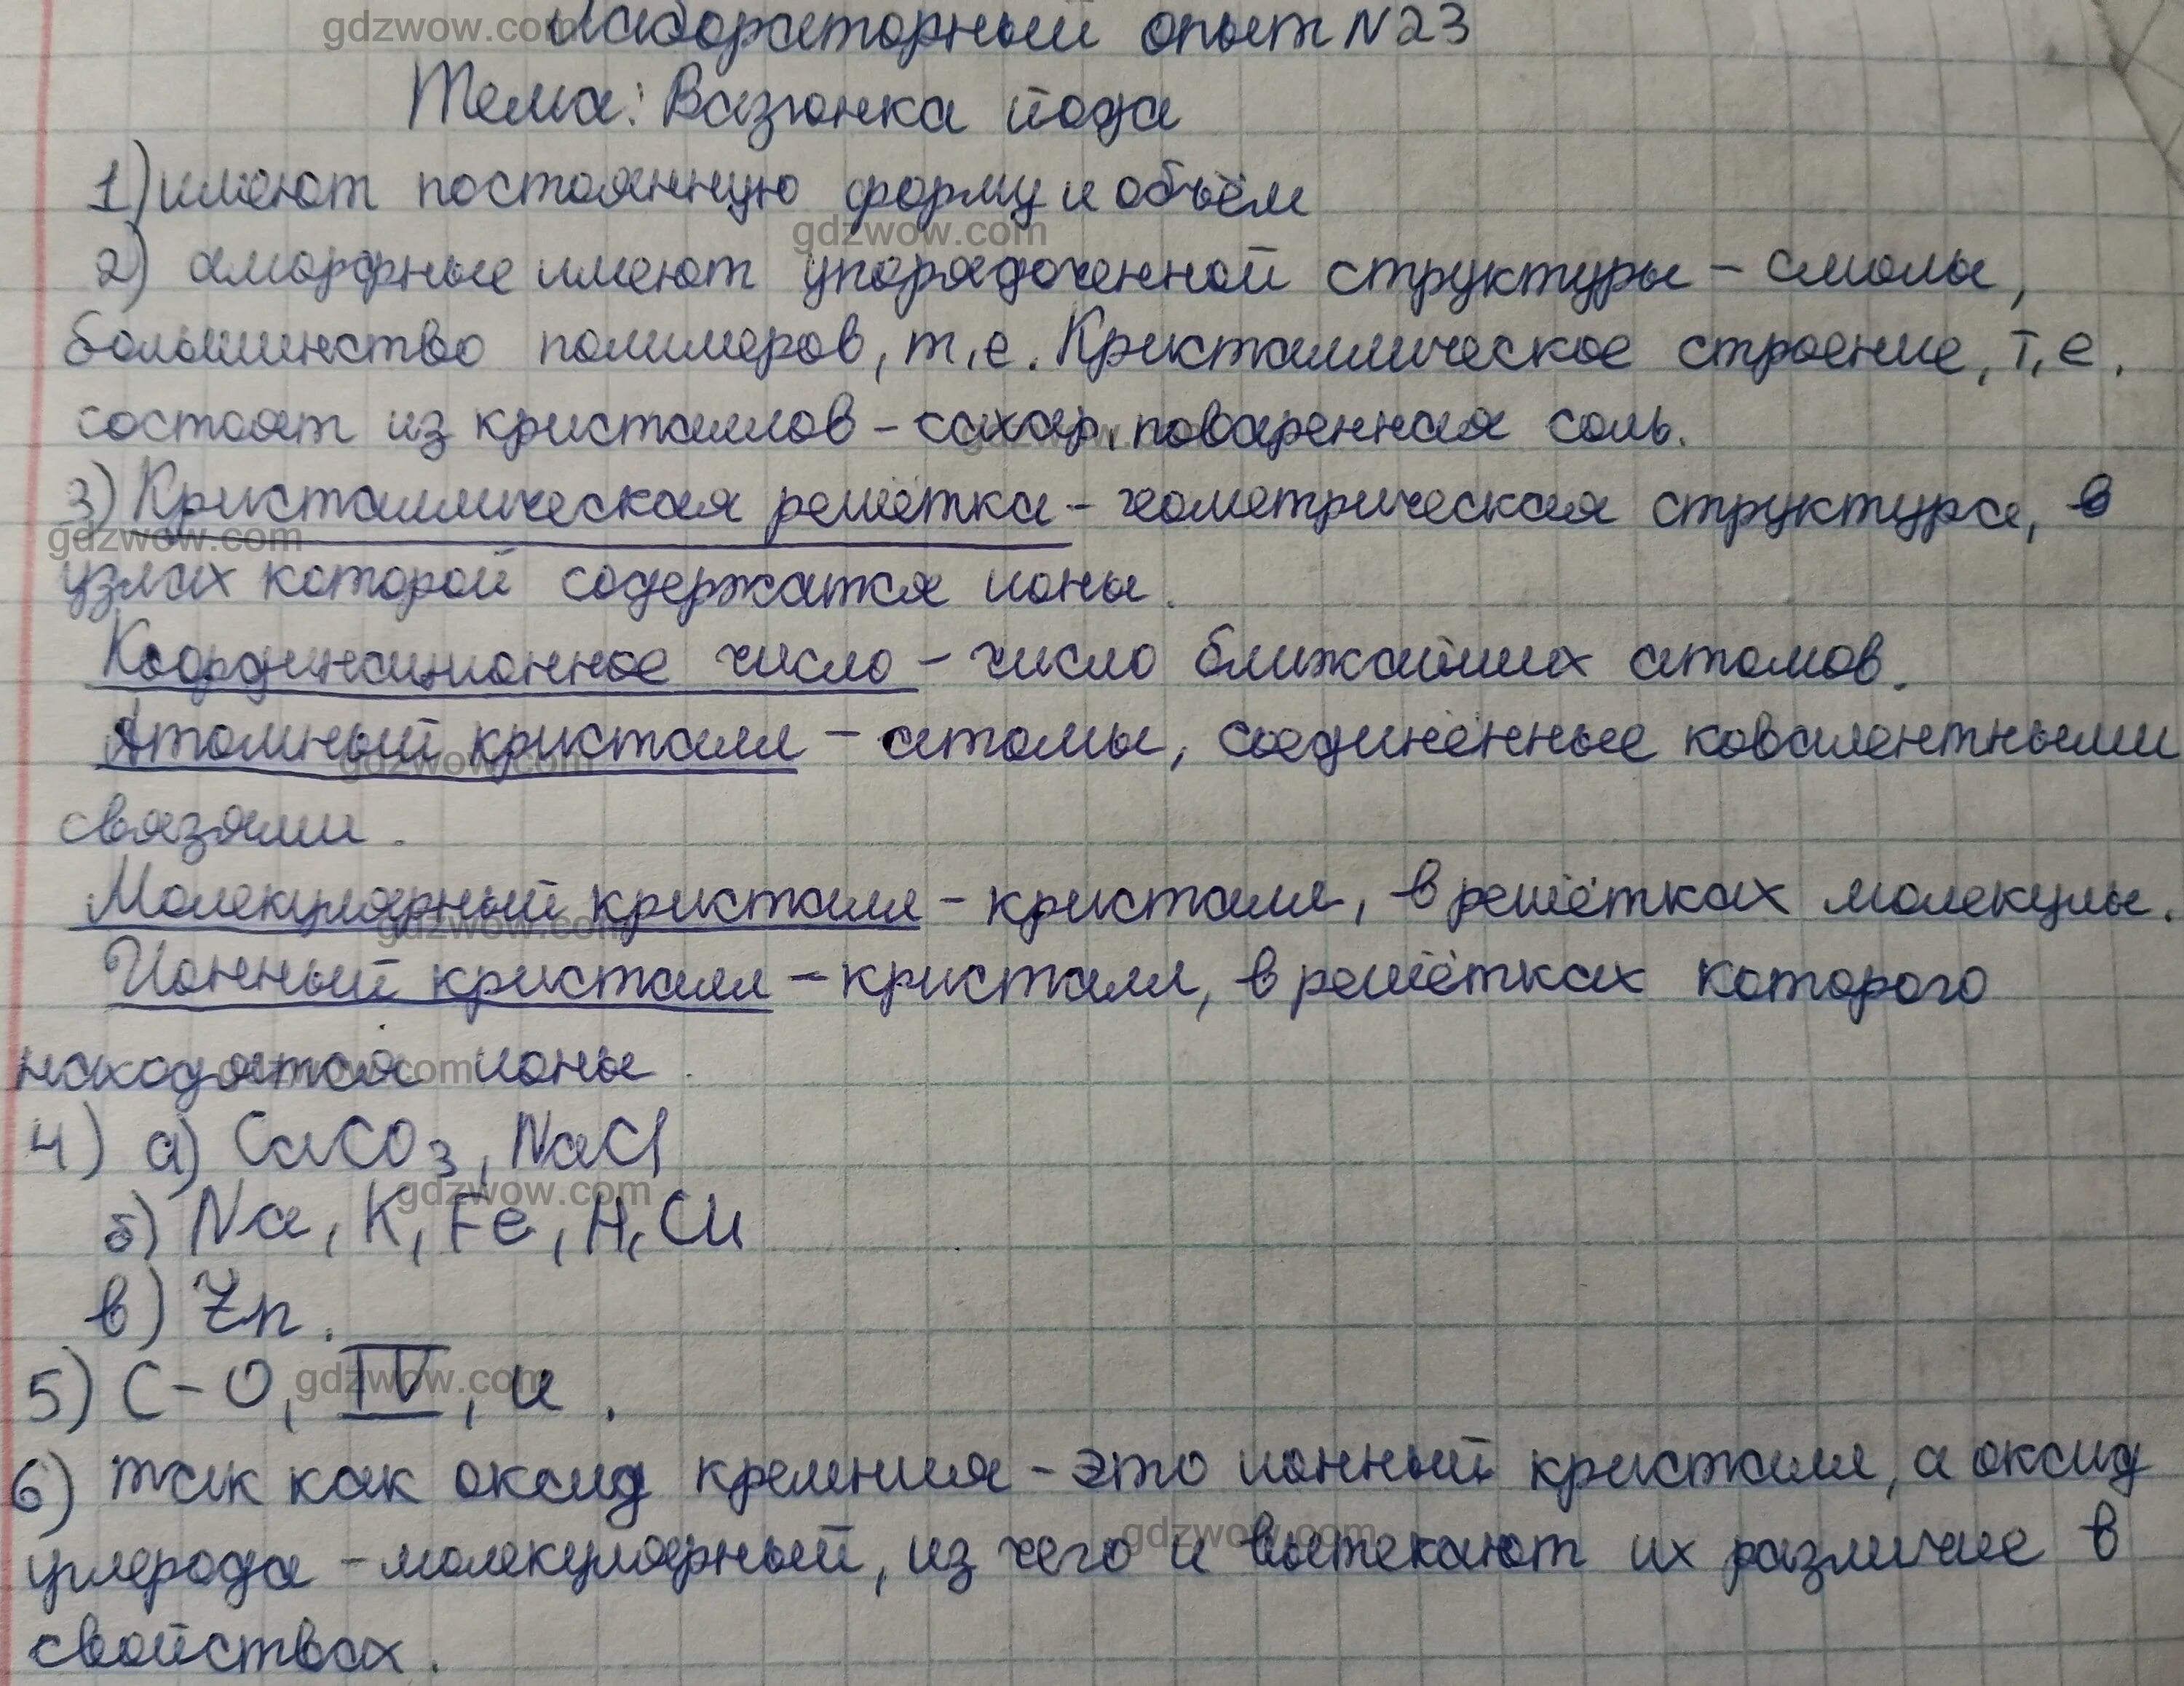 Лабораторный опыт N23
Тема: Вазгонка йода
1) имеют постоянную форму и объём
2) аморфные имеют упорядоченной структуры - смолы,
большинство полимеров, т.е. Кристаллическое строение, т.е.
состоят из кристаллов - сахар, поваренная соль.
3) Кристаллическая решётка - геометрическая структура, в
узлах которой содержатся ионы.
Координационное число - число ближайших атомов.
Атомный кристалл - атомы, соединённые ковалентными
связями.
Молекулярный кристалл - кристалл, в решётках молекулы.
Ионный кристалл - кристалл, в решётках которого
находятся ионы.
4) а) CaCO3, NaCl
б) Na, K, Fe, H, Cu
в) Zn.
5) C-O, IV, и.
6) так как оксид кремния - это ионный кристалл, а оксид
углерода - молекулярный, из чего и вытекают их различие в
свойствах.
gdzwow.com
gdzwow.com
gdzwow.com
gdzwow.com
gdzwow.com
gdzwow.com
gdzwow.com
gdzwow.com
gdzwow.com
gdzwow.com